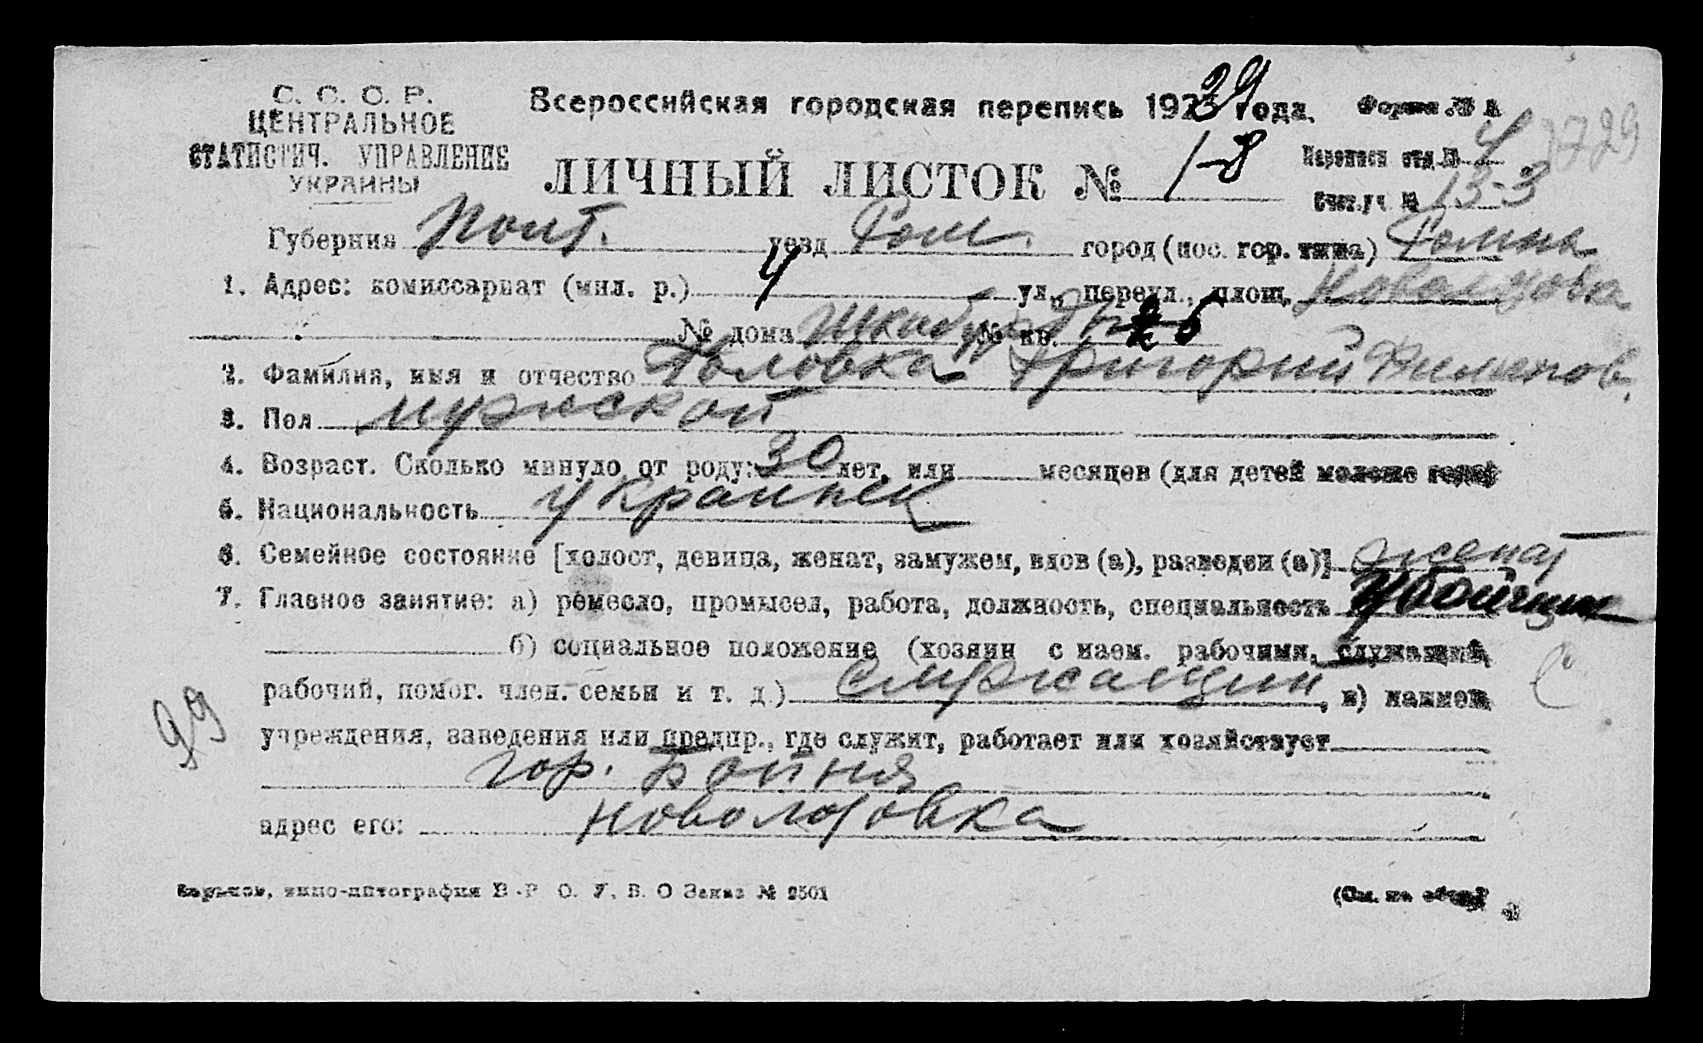 С. С. С. Р.
ЦЕНТРАЛЬНОЕ
СТАТИСТИЧ. УПРАВЛЕНИЕ
УКРАИНЫ
Всероссийская городская перепись 1923 года.
Форма № А
ЛИЧНЫЙ ЛИСТОК № 1-8
Переписн отд. № 4
1729
Счет. уч. № 13-3
Губерния Полт. уезд Ром. город (пос. гор. типа) Ромны
1. Адрес: комиссариат (мил. р.) 4 ул., переул., площ.
№ дома № кв. 6
2. Фамилия, имя и отчество Головка Григорий Филипов.
3. Пол мужской
4. Возраст. Сколько минуло от роду: 30 лет, или месяцев (для детей моложе года)
5. Национальность украинец
6. Семейное состояние [холост, девица, женат, замужем, вдов (а), разведен (а)] женат
7. Главное занятие: а) ремесло, промысел, работа, должность, специальность убойщик
б) социальное положение (хозяин с наем. рабочими, служащий,
рабочий, помог. член. семьи и т. д.) служащий, в) наимен.
учреждения, заведения или предпр., где служит, работает или хозяйствует
гор. Бойня
адрес его:
99
Харьков, типо-литография В. Р О. У. В. О Заказ № 2501
(См. на обор.)